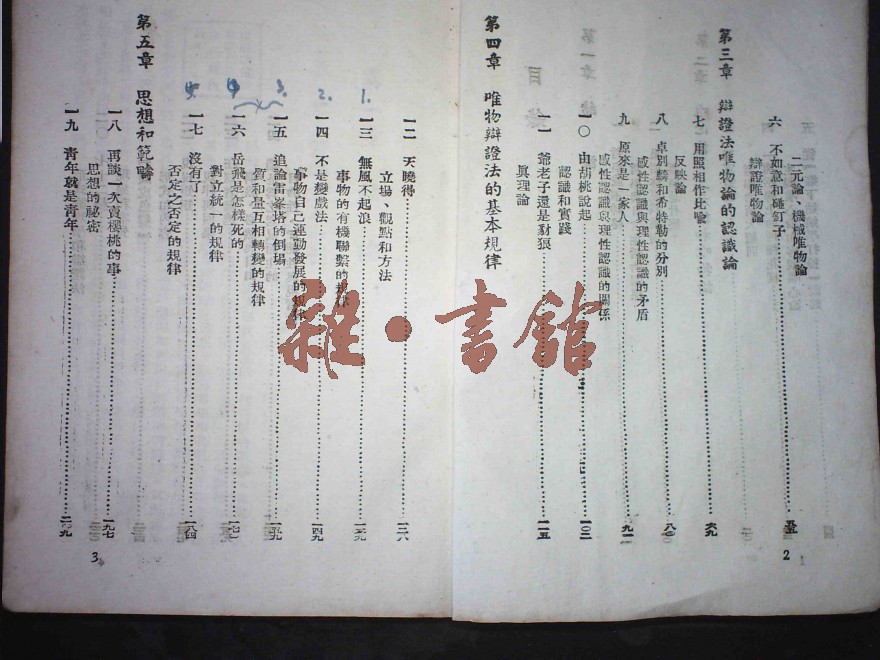 二元論、機械唯物論
六 不如意和碰釘子……五五
辯證唯物論
第三章 辯證法唯物論的認識論
七 用照相作比喻……六九
反映論
八 卓別麟和希特勒的分別……八〇
感性認識與理性認識的矛盾
九 原來是一家人……九一
感性認識與理性認識的關係
一〇 由胡桃說起……一〇三
認識和實踐
一一 爺老子還是豺狼……一一五
眞理論
第四章 唯物辯證法的基本規律
2
一二 天曉得……一二六
立場、觀點和方法
1.
一三 無風不起浪……一三九
事物的有機聯繫的規律
2.
一四 不是變戲法……一四九
事物自己運動發展的規律
3.
一五 追論雷峯塔的倒塌……一五九
質和量互相轉變的規律
4
一六 岳飛是怎樣死的……一七一
對立統一的規律
一七 沒有了……一八四
否定之否定的規律
第五章 思想和範疇
一八 再談一次賣櫻桃的事……一九七
思想的祕密
一九 青年就是青年……二〇九
3
雜·書館